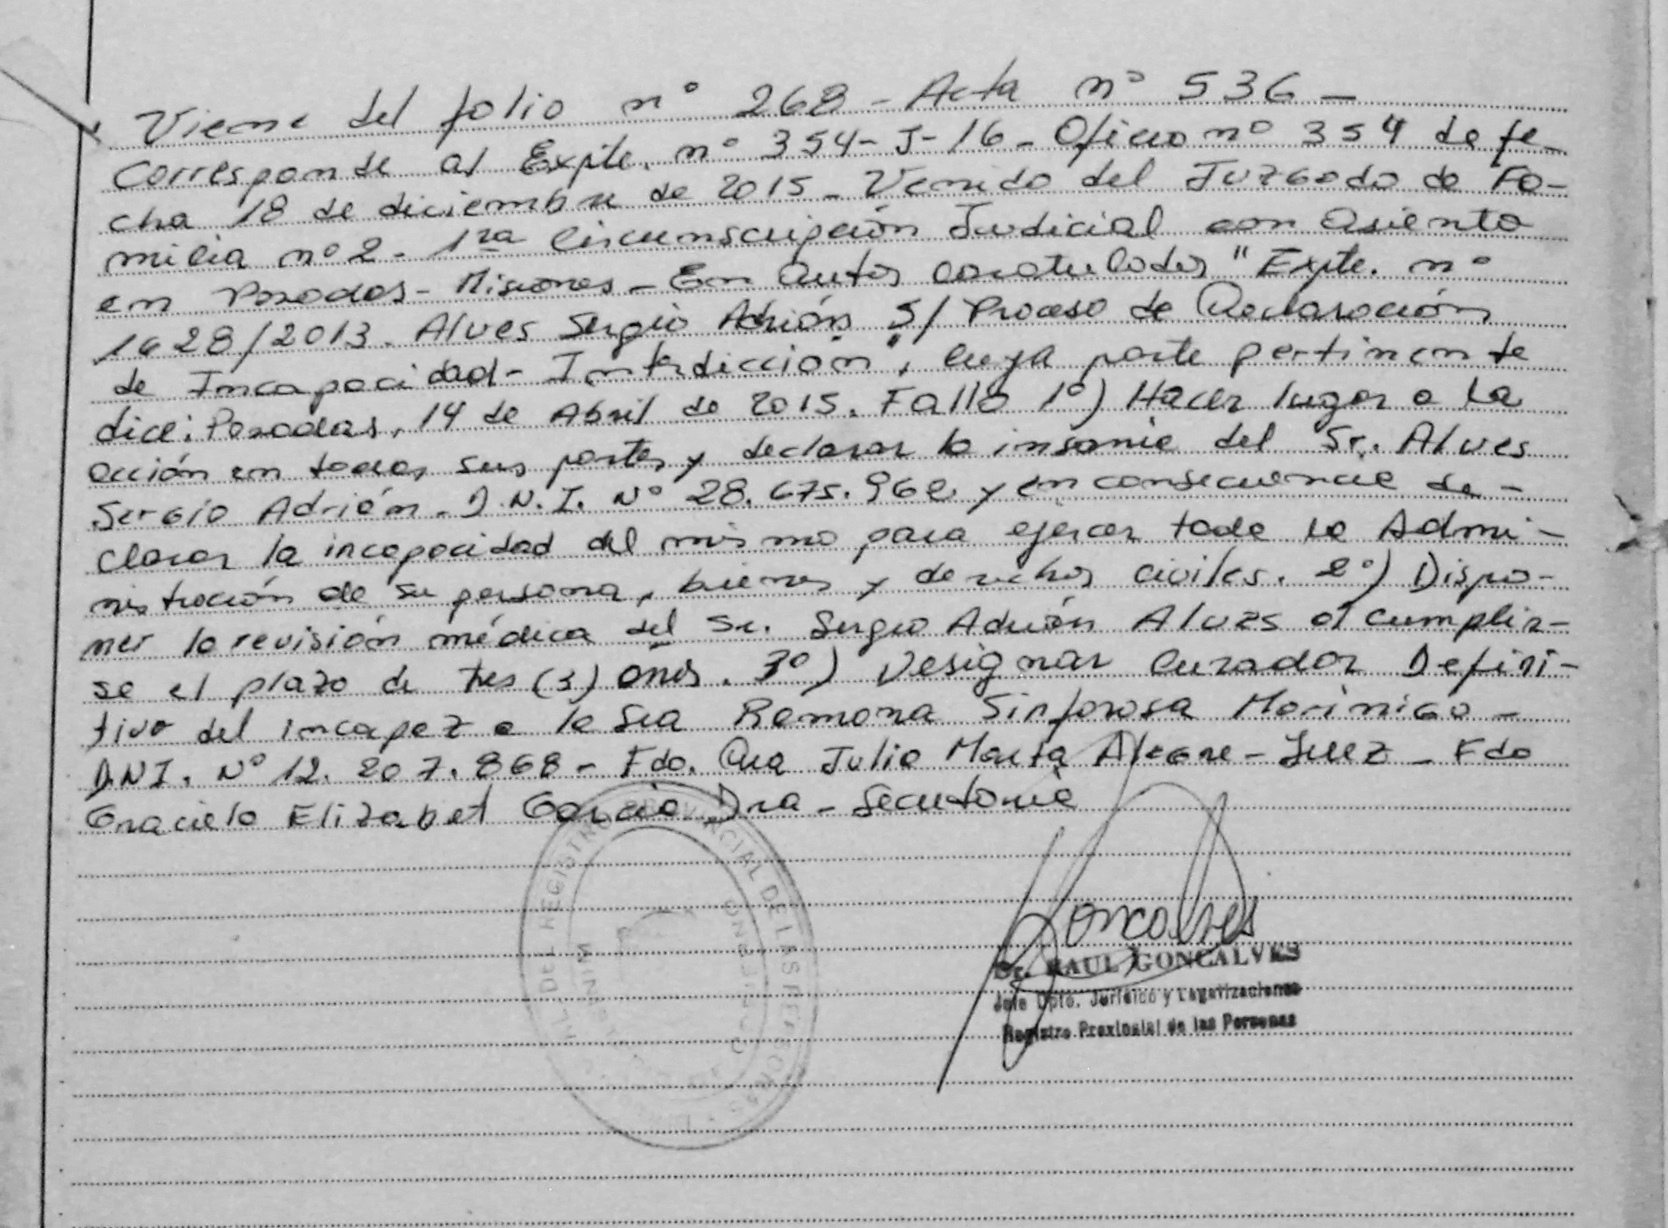 Viene del folio n° 268 - Acta n° 536 -
Corresponde al Expte. n° 354- J-16 - Oficio n° 354 de fe-
cha 18 de diciembre de 2015 - Venido del Juzgado de Fa-
milia n° 2 - 1ra Circunscripción Judicial con Asiento
en Posadas - Misiones - En autos caratulados "Expte. n°
1628/2013. Alves Sergio Adrián S/ Proceso de Declaración
de Incapacidad - Interdicción", cuya parte pertinente
dice: Posadas, 14 de Abril de 2015. Fallo 1°) Hacer lugar a la
acción en todas sus partes y declarar la insania del Sr. Alves
Sergio Adrián - D.N.I. N° 28.675.962 y en consecuencia de-
clarar la incapacidad del mismo para ejercer toda la Admi-
nistración de su persona, bienes y derechos civiles. 2°) Dispo-
ner la revisión médica del Sr. Sergio Adrián Alves al cumplir-
se el plazo de tres (3) años. 3°) Designar Curador Defini-
tivo del incapaz a la Sra Ramona Sinforosa Morinigo -
D.N.I. N° 12.207.868 - Fdo. Dra Julia Marta Alegre - Juez - Fdo
Graciela Elizabet Garcia, Dra - Secretaria
DEL REGISTRO PROVINCIAL DE LAS PERSONAS
Goncalves
Dr. RAUL GONCALVES
Jefe Dpto. Jurídico y Legalizaciones
Registro Provincial de las Personas